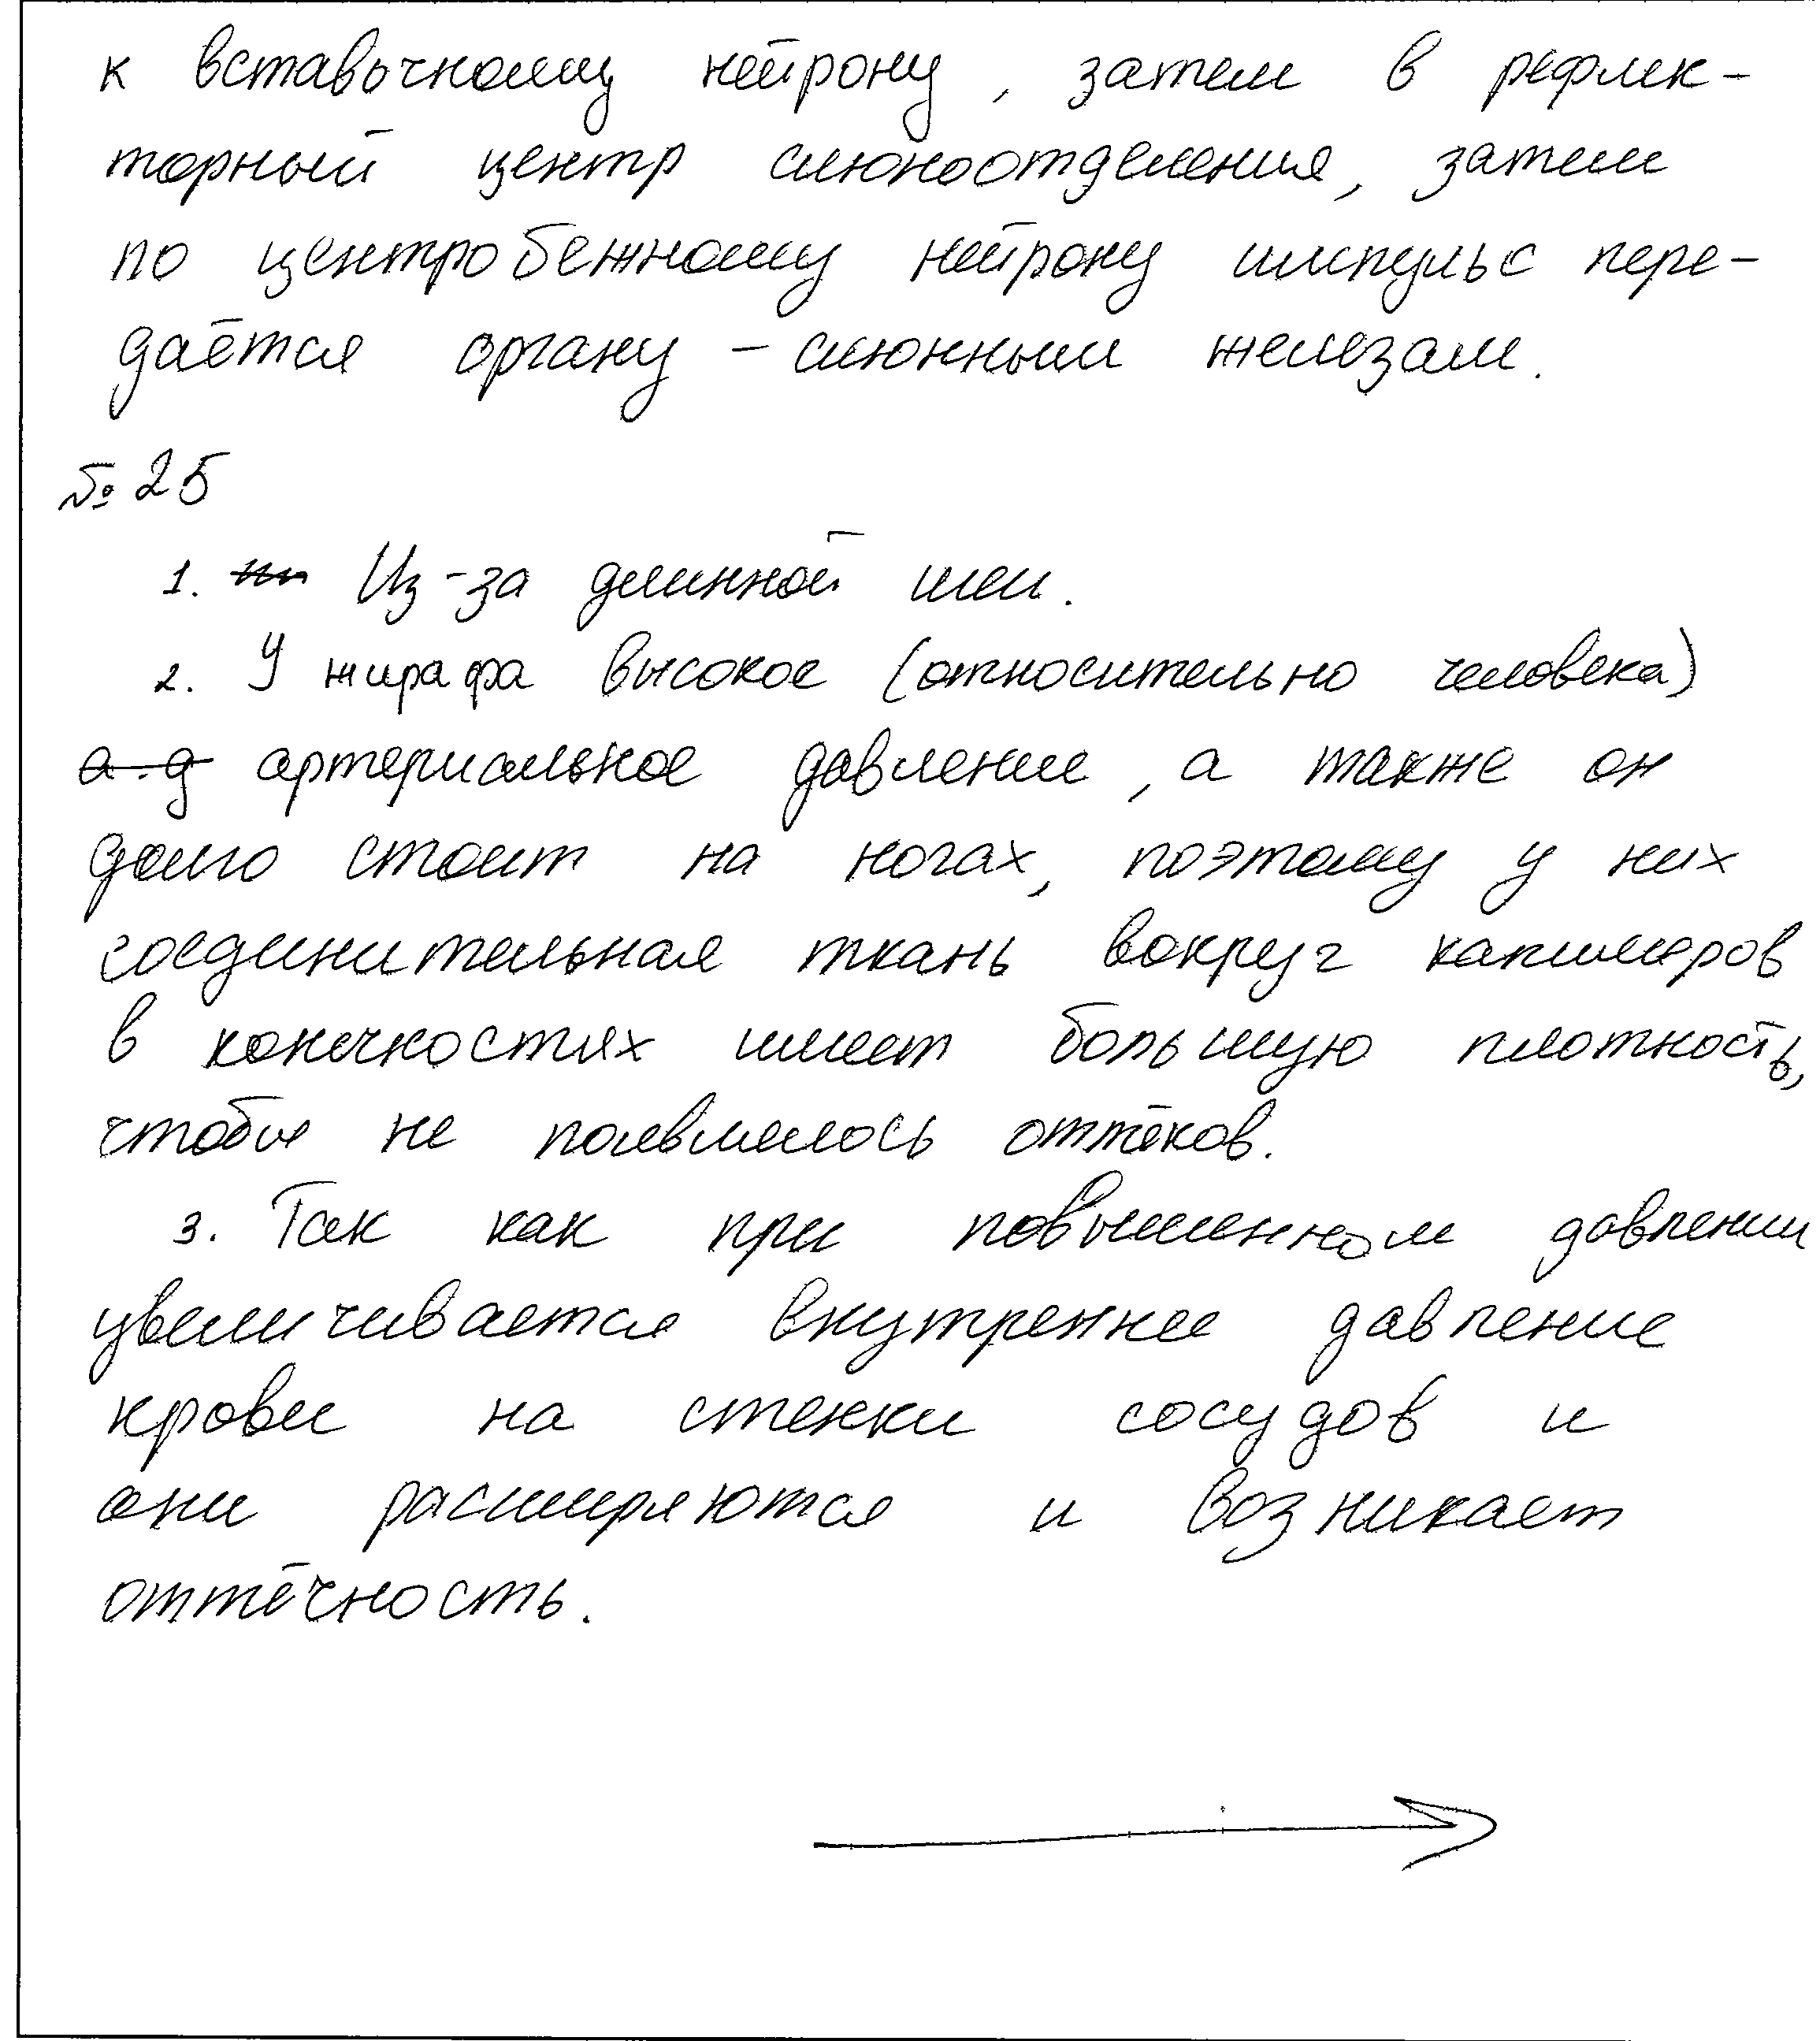 к вставочному нейрону, затем в рефлек-
торный центр слюноотделения, затем
по центробежному нейрону импульс пере-
даётся органу - слюнным железам.
№ 25
1. Из-за длинной шеи.
2. У жирафа высокое (относительно человека)
а.д артериальное давление, а также он
долго стоит на ногах, поэтому у них
соединительная ткань вокруг капилляров
в конечностях имеет большую плотность,
чтобы не появлялось оттёков.
3. Так как при повышенном давлении
увеличивается внутреннее давление
крови на стенки сосудов и
они расширяются и возникает
оттёчность.